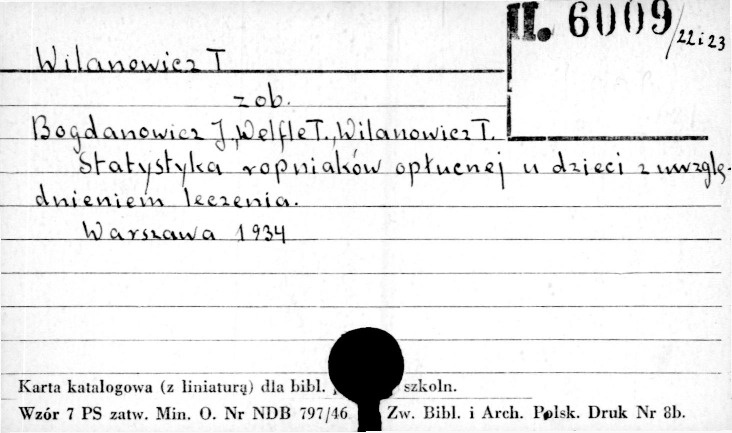 II. 6009/22 i 23
Wilanowicz T
zob.
Bogdanowicz J, Welfle T., Wilanowicz T.
Statystyka ropniaków opłucnej u dzieci z uwzglę-
dnieniem leczenia.
Warszawa 1934
Karta katalogowa (z liniaturą) dla bibl. szkoln.
Wzór 7 PS zatw. Min. O. Nr NDB 797/46 Zw. Bibl. i Arch. Polsk. Druk Nr 8b.